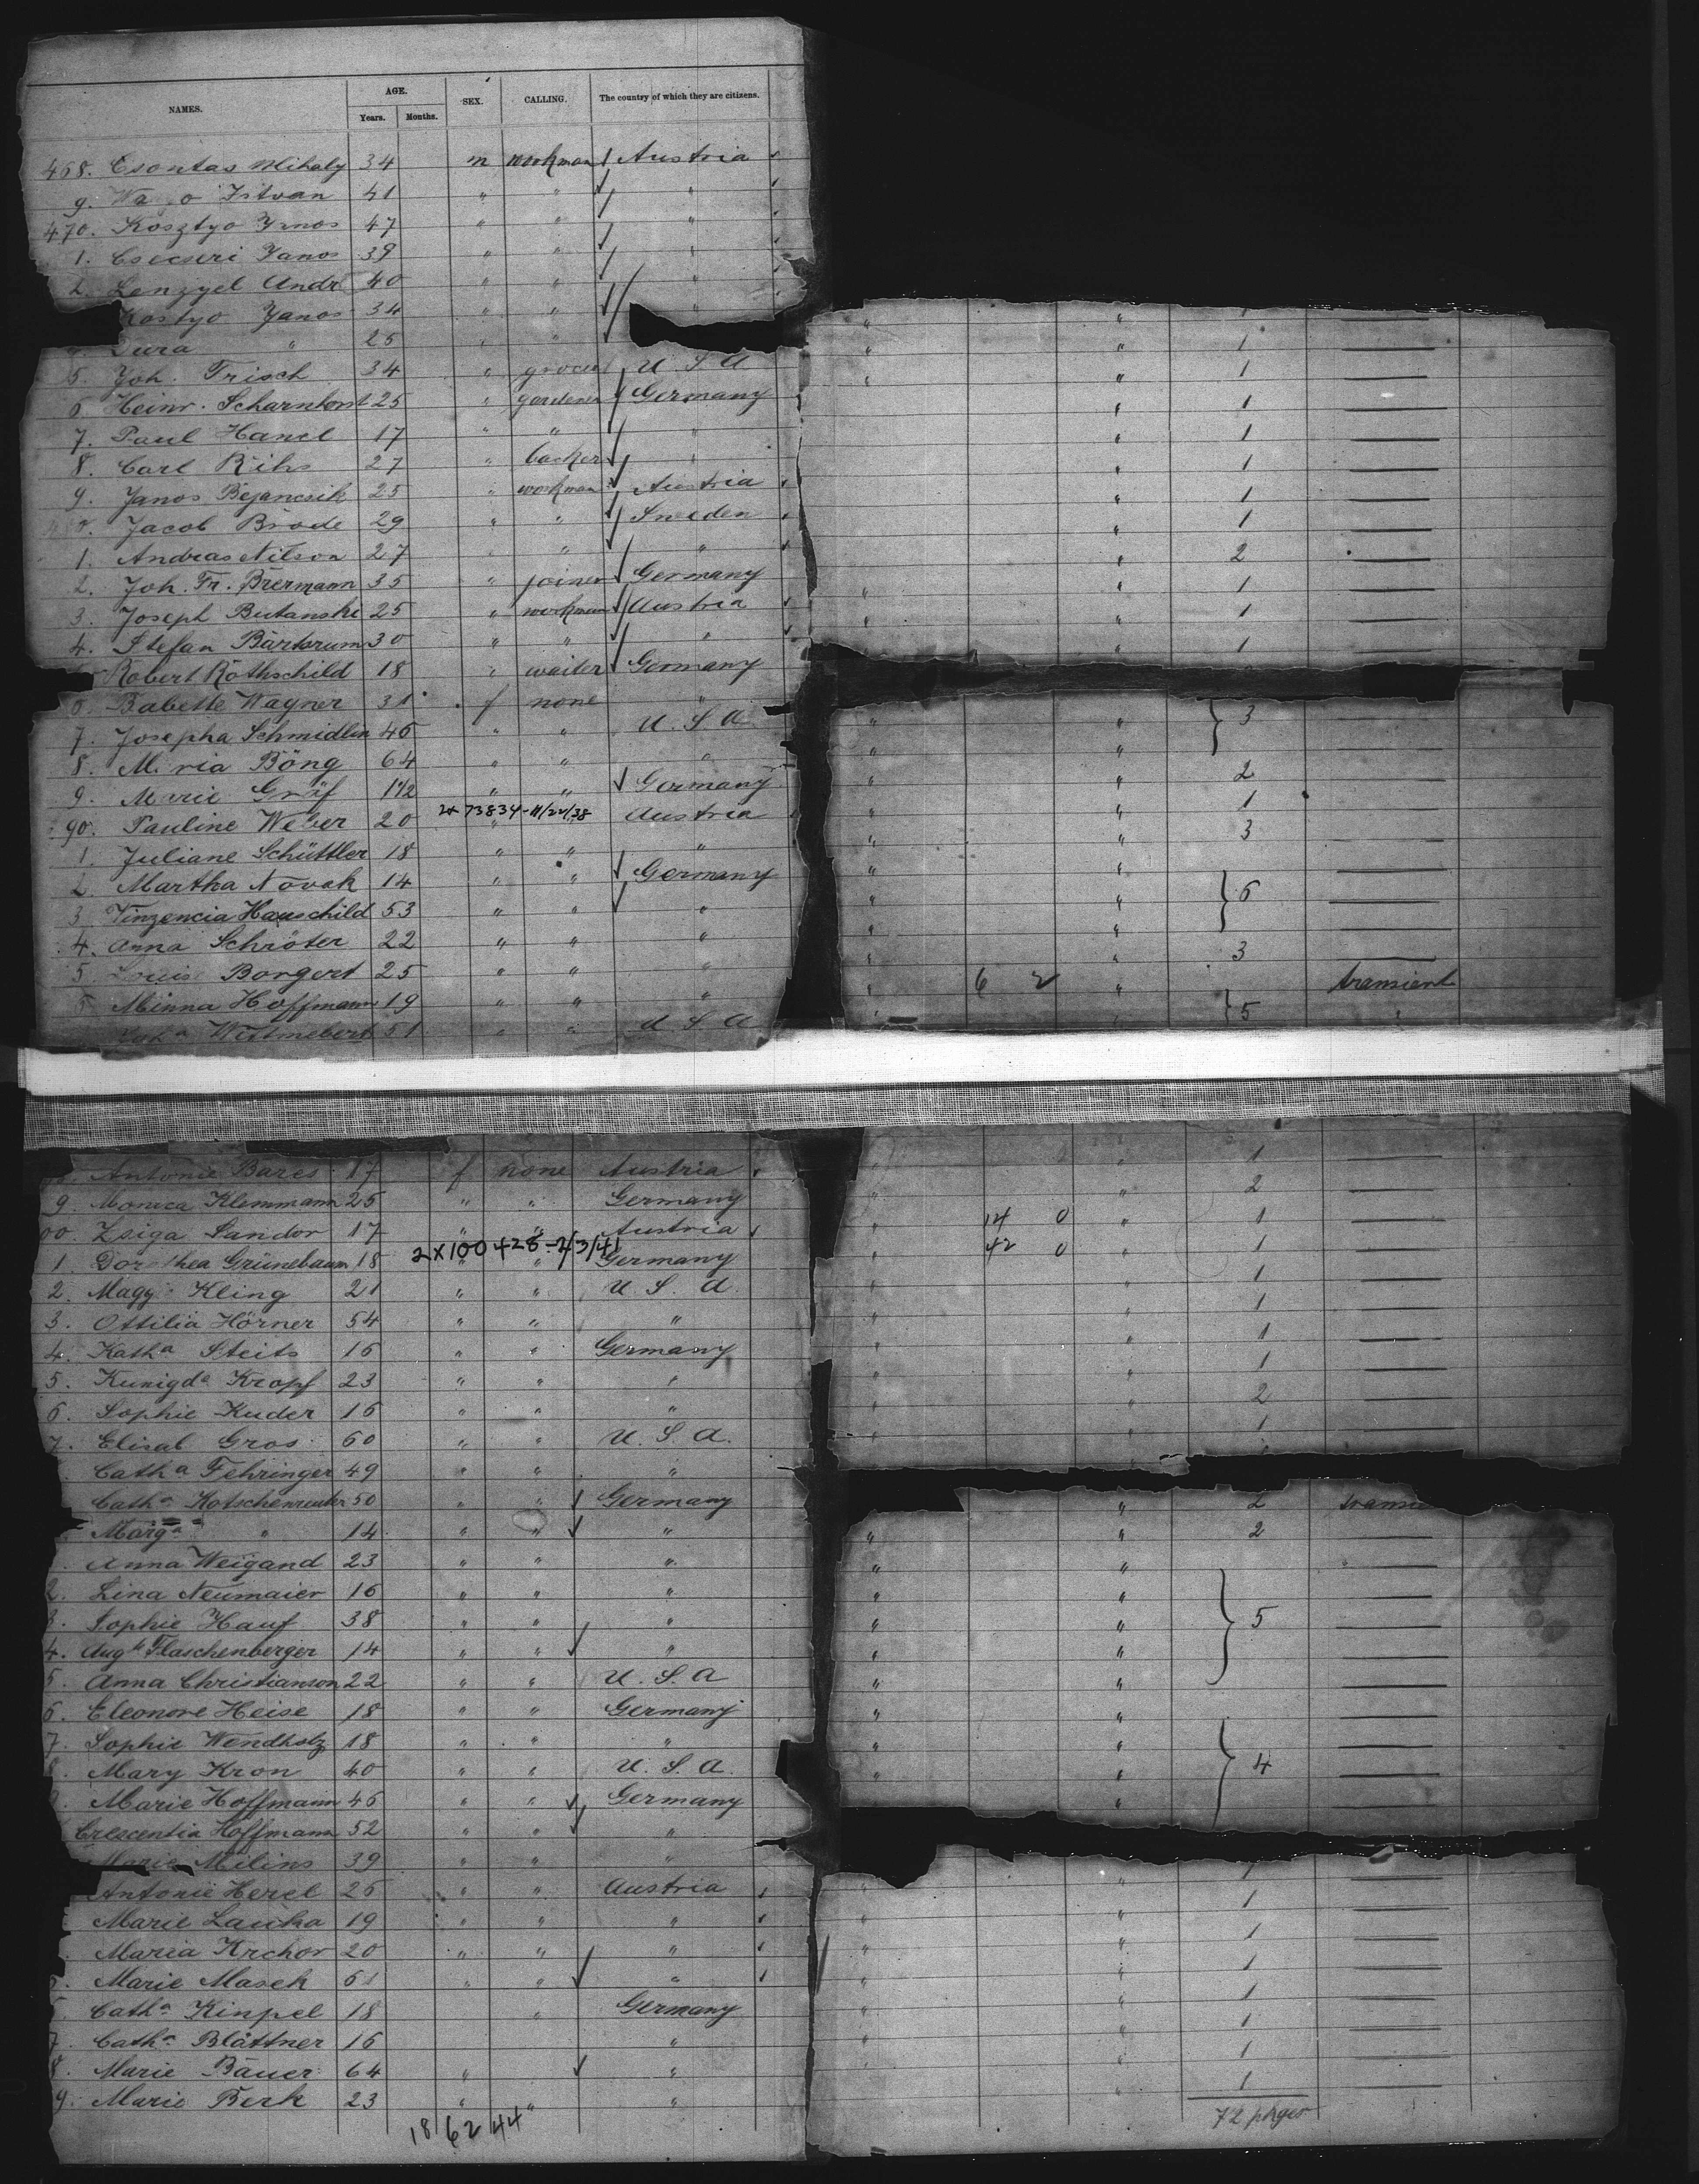 NAMES. AGE. SEX. CALLING. The country of which they are citizens.
Years. Months.
468. Csontas Mihaly 34 m workman Austria
9. Istvan 41 " " "
470. Kosztyo Janos 47 " " "
1. Csecseri Janos 39 " " "
2. Lenzyel Andr 40 " " "
Kostyo Janos 34 " " " " " 1
Dura " 25 " " " " 1
5. Joh. Frisch 34 " grocer U. S. A " " 1
6. Heinr. Scharnhorst 25 " gardener Germany " 1
7. Paul Hanel 17 " " " " 1
8. Carl Rihs 27 " backer " " 1
9. Janos Bejancsik 25 " workman Austria " 1
480. Jacob Brode 29 " " Sweden " 1
1. Andreas Nilson 27 " " " " 2
2. Joh. Fr. Brermann 35 " joiner Germany " " 1
3. Joseph Butanski 25 " workman Austria " " 1
4. Stefan Bartorum 30 " " " " 1
Robert Rothschild 18 " waiter Germany
6. Babette Wagner 31 f none " " " 3
7. Josepha Schmidlin 46 " " U. S. A " "
8. M ria Böng 64 " " " " " 2
9. Marie Gräf 1 1/2 " " Germany " " 1
2x 73834-11/22/38
490. Pauline Weber 20 " " Austria " " 3
1. Juliane Schüttler 18 " " " " "
2. Martha Novak 14 " " Germany " " 6
3. Vinzencia Hauschild 53 " " " " "
4. Anna Schröter 22 " " " " "
5. Louise Borgert 25 " " " " " 3
6. Minna Hoffmann 19 " " " " 6 2 " transient
Wittmebert 51 " " U S A " " 5
Antonie Bares 17 f none Austria " " 1
9. Monica Klemmann 25 " " Germany " " 2
00. Zsiga Sandor 17 " " Austria " 14 0 " 1
2x100428-2/3/41
1. Dorothea Grünebaum 18 " " Germany " 42 0 " 1
2. Magg Kling 21 " " U. S. A. " " 1
3. Ottilia Hörner 54 " " " " " 1
4. Katha Steits 16 " " Germany " " 1
5. Kunigda Kropf 23 " " " " " 1
6. Sophie Kuder 16 " " " " " 2
7. Elisab Gros 60 " " U. S. A. " " 1
Catha Fehringer 49 " " "
Catha Kotschenreuter 50 " " Germany " 2
Marga " 14 " " " " " 2
Anna Weigand 23 " " " " "
2. Lina Neumaier 16 " " " " "
3. Sophie Hauf 38 " " " " " 5
4. Augte Flaschenberger 14 " " " " "
5. Anna Christianson 22 " " U. S. A " "
6. Eleonore Heise 18 " " Germany " "
7. Sophie Wendholz 18 " " " " "
8. Mary Kron 40 " " U. S. A. " " 4
9. Marie Hoffmann 46 " " Germany "
Crescentia Hoffmann 52 " " "
Marie Milins 39 " " " " 1
Antonie Herel 26 " " Austria " " 1
Marie Laucka 19 " " " " " 1
Maria Krchov 20 " " " " " 1
Marie Masek 61 " " " " " 1
Catha Kinpel 18 " Germany " " 1
7. Catha Blättner 16 " " " 1
8. Marie Bauer 64 " " " " 1
9. Marie Berk 23 " " "
18 62 44 72